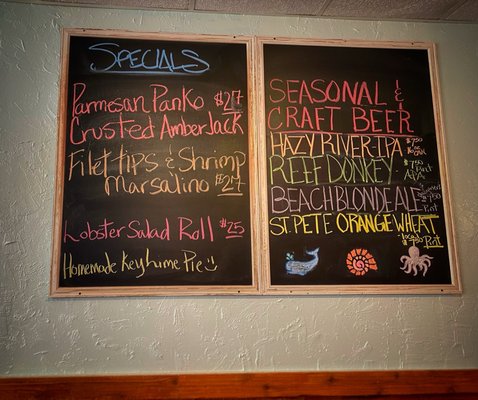 Specials
Parmesan Panko $27
Crusted AmberJack
Filet tips & Shrimp
Marsalino $27
Lobster Salad Roll $25
Homemade Key Lime Pie
SEASONAL &
CRAFT BEER
HAZY RIVER-IPA
REEF DONKEY
$7.50 Pint
APA
BEACH BLONDE ALE
ST. PETE ORANGE WHEAT
Pint